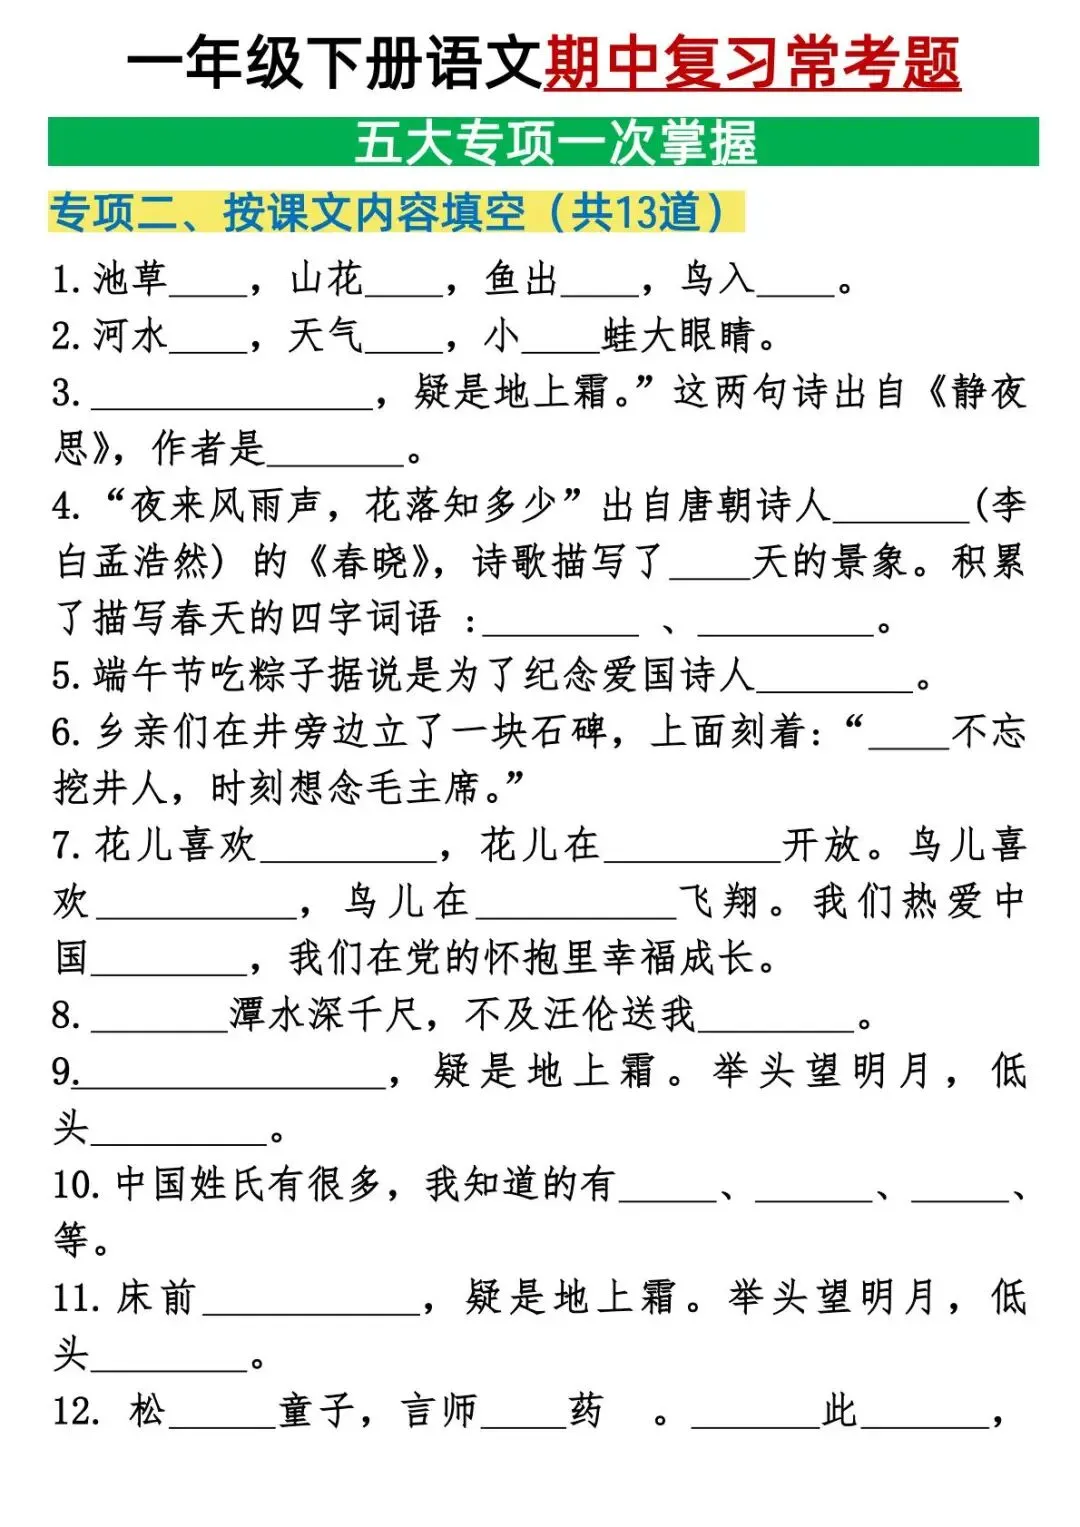 一年级下册语文期中复习常考题
五大专项一次掌握
专项二、按课文内容填空（共13道）
1.池草____，山花____，鱼出____，鸟入____。
2.河水____，天气____，小____蛙大眼睛。
3.______________，疑是地上霜。”这两句诗出自《静夜
思》，作者是_______。
4.“夜来风雨声，花落知多少”出自唐朝诗人_______(李
白孟浩然）的《春晓》，诗歌描写了____天的景象。积累
了描写春天的四字词语：________、_________。
5.端午节吃粽子据说是为了纪念爱国诗人________。
6.乡亲们在井旁边立了一块石碑，上面刻着：“____不忘
挖井人，时刻想念毛主席。”
7.花儿喜欢_________，花儿在_________开放。鸟儿喜
欢__________，鸟儿在__________飞翔。我们热爱中
国________，我们在党的怀抱里幸福成长。
8._______潭水深千尺，不及汪伦送我________。
9.________________，疑是地上霜。举头望明月，低
头_________。
10.中国姓氏有很多，我知道的有_____、______、_____、
等。
11.床前___________，疑是地上霜。举头望明月，低
头________。
12. 松_____童子，言师____药 。______此______，